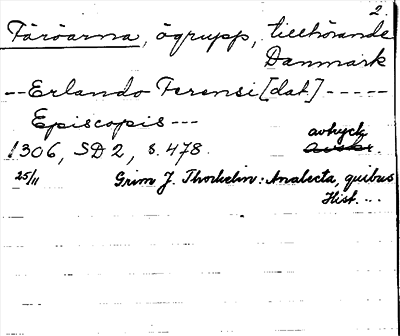 2.
Färöarna, ögrupp, tillhörande
Danmark
-- Erlando Ferensi [dat] -----
Episcopis ---
1306, SD 2, s. 478. avtryck
25/11 Grim J. Thorkelin: Analecta, quibus
Hist. ...